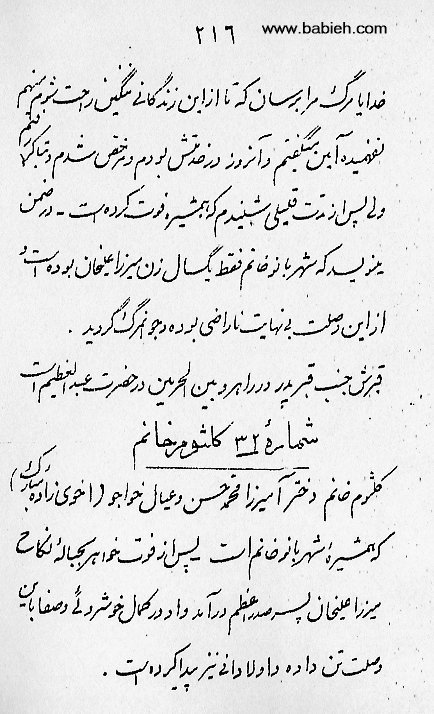 ٢١٦ www.babieh.com
خدایا مرگ مرا برسان که تا از این زندگانی ننگین راحت شوم منهم
نفهمیده آمین میگفتم و آنروز در خدمتش بودم و مرخص شدم و تباکر رفتم
ولی پس از مدت قلیلی شنیدم که همشیره فوت کرده است - در ضمن
مینویسد که شهربانو خانم فقط یکسال زن میرزا علیخان بوده است و
از این وصلت بی نهایت ناراضی بوده و جوانمرگ گردید .
قبرش جنب قبر پدر در راهرو بین الحرمین در حضرت عبدالعظیم است
شمارهٔ ٣٢ کلثوم خانم
کلثوم خانم دختر آمیرزا محمد حسن و عیال خواجو (اخوی زاده مبارک)
که همشیرهٔ شهربانو خانم است پس از فوت خواهر بحبالهٔ نکاح
میرزا علیخان پسر صدر اعظم درآمد و او در کمال خوشروئی و صفا باین
وصلت تن داده و اولادانی نیز پیدا کرده است .